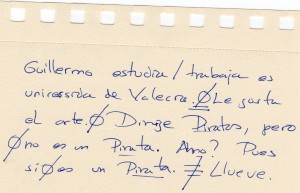 Guillermo estudia/trabaja es
univerasida de Valecra. Ø Le gusta
el arte. Ø Dirige Piratas, pero
Ø no es un Pirata. Amo? Pues
si Ø es un Pirata. Llueve.